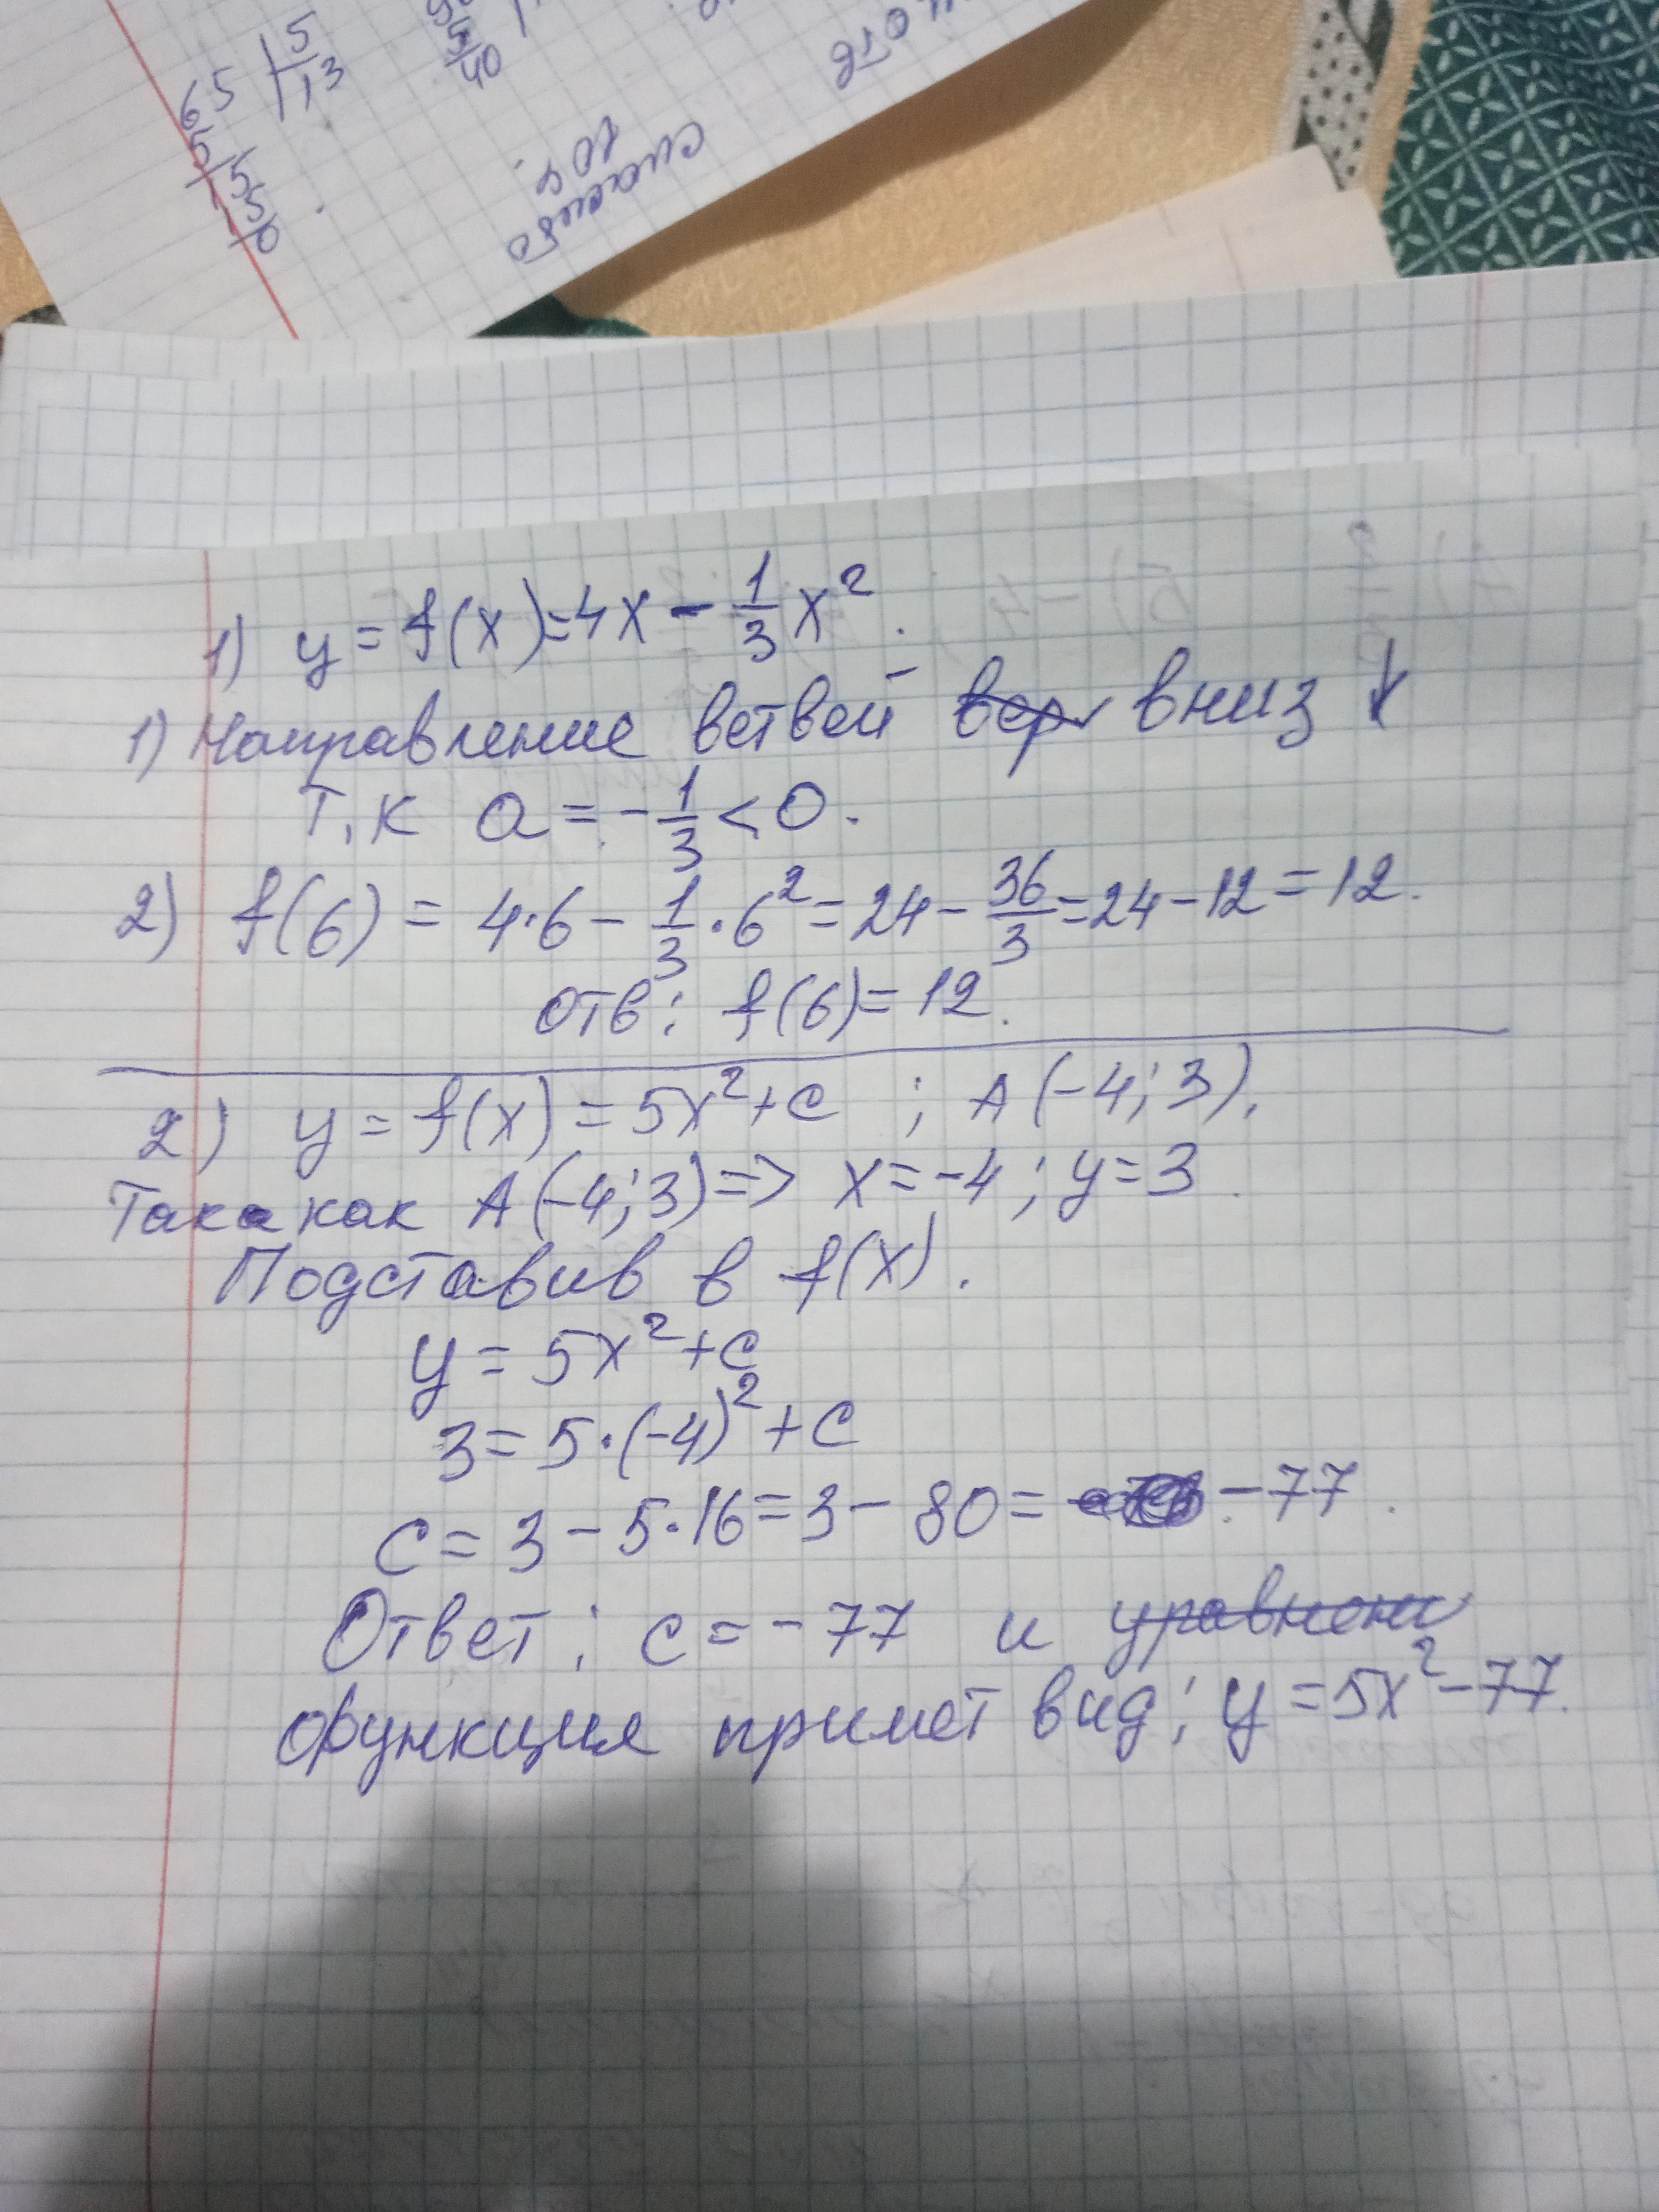 65 | 5
5 13
15
15
0
5
40
10 ч.
спасибо
1) y = f(x)=4x - 1/3 x².
1) Направление ветвей вниз ↓
т.к a = -1/3 < 0.
2) f(6) = 4·6 - 1/3 · 6² = 24 - 36/3 = 24 - 12 = 12.
Отв: f(6) = 12.
2) y = f(x) = 5x² + c ; A (-4; 3).
Так как A (-4; 3) => x = -4; y = 3.
Подставив в f(x).
y = 5x² + c
3 = 5·(-4)² + c
c = 3 - 5·16 = 3 - 80 = -77.
Ответ: c = -77 и уравнени
функция примет вид: y = 5x² - 77.